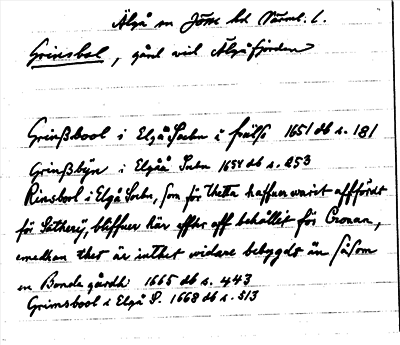 Älgå sn Jösse hd Värml. l.
Grinsbol, gård vid Älgåfjorden
Grinßbool i Elgå Sochn i frälse 1651 db s. 181
Grinßbÿn i Elgåå Sochn 1654 db s. 253
Rinsbool i Elgå Sochn, som för thetta haffuer warit affördt
för Säterÿ, bliffuer här effter aff behållit för Cronan,
emedhan ther är inthet widare bebygdt än såsom
en Bonda gårdh 1665 db s. 443
Grimsbool i Elgå S. 1668 db s. 513